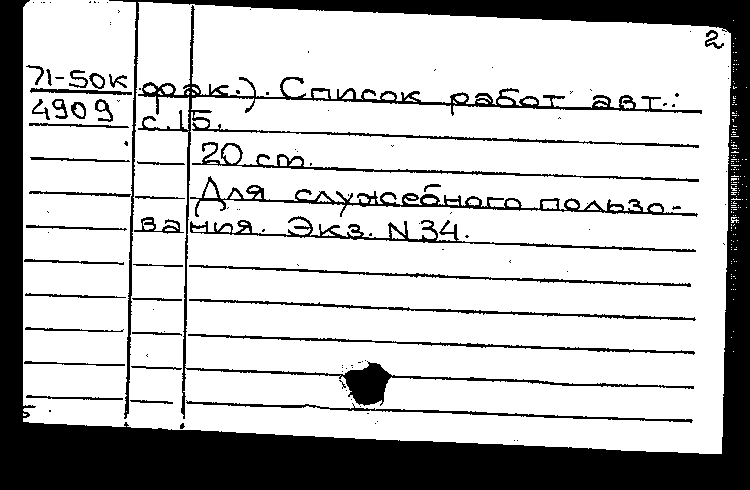 2
71-50к фак.). Список работ авт.:
4909 с.15.
20 cm.
Для служебного пользо-
вания. Экз. N 34.